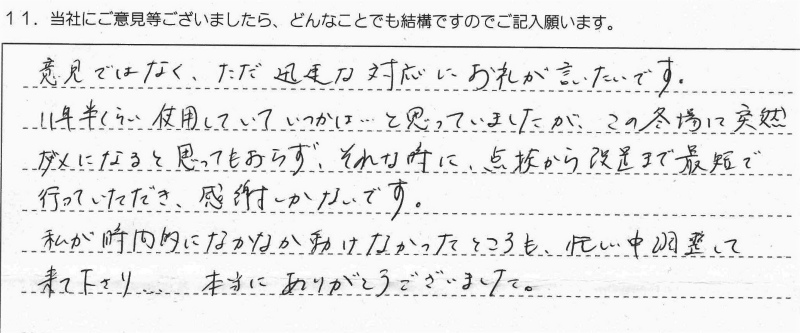 11. 当社にご意見等ございましたら、どんなことでも結構ですのでご記入願います。
意見ではなく、ただ迅速な対応にお礼が言いたいです。
11年半くらい使用していていつかは…と思っていましたが、この冬場に突然
ダメになると思ってもおらず、それな時に、点検から設置まで最短で
行っていただき、感謝しかないです。
私が時間的になかなか動けなかったところも、忙しい中調整して
来て下さり… 本当にありがとうございました。